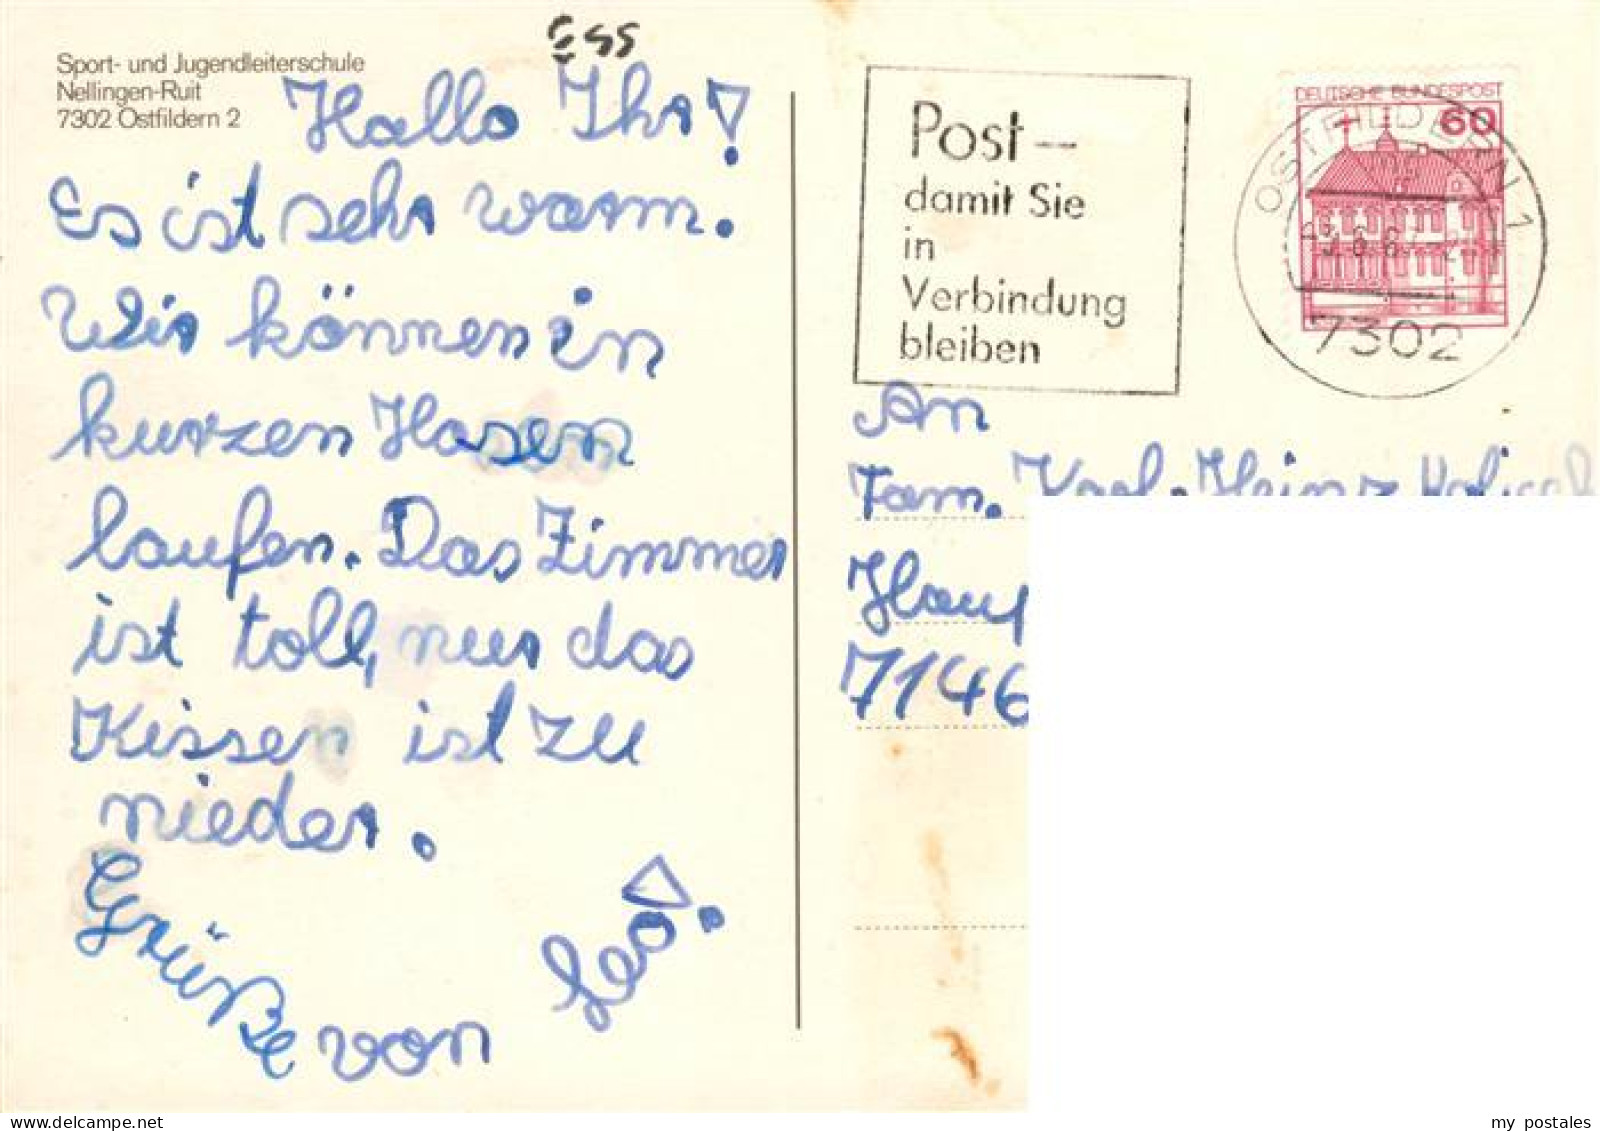 Sport- und Jugendleiterschule
Nellingen-Ruit
7302 Ostfildern 2
ESS
Hallo Ihr!
Es ist sehr warm.
Wir können in
kurzen Hosen
laufen. Das Zimmer
ist toll, nur das
Kissen ist zu
nieder.
Grüße von Leo!
Post –
damit Sie
in
Verbindung
bleiben
DEUTSCHE BUNDESPOST
60
OSTFILDERN 1
7302
An
Fam. Karl-Heinz
Haup
7146
my postales